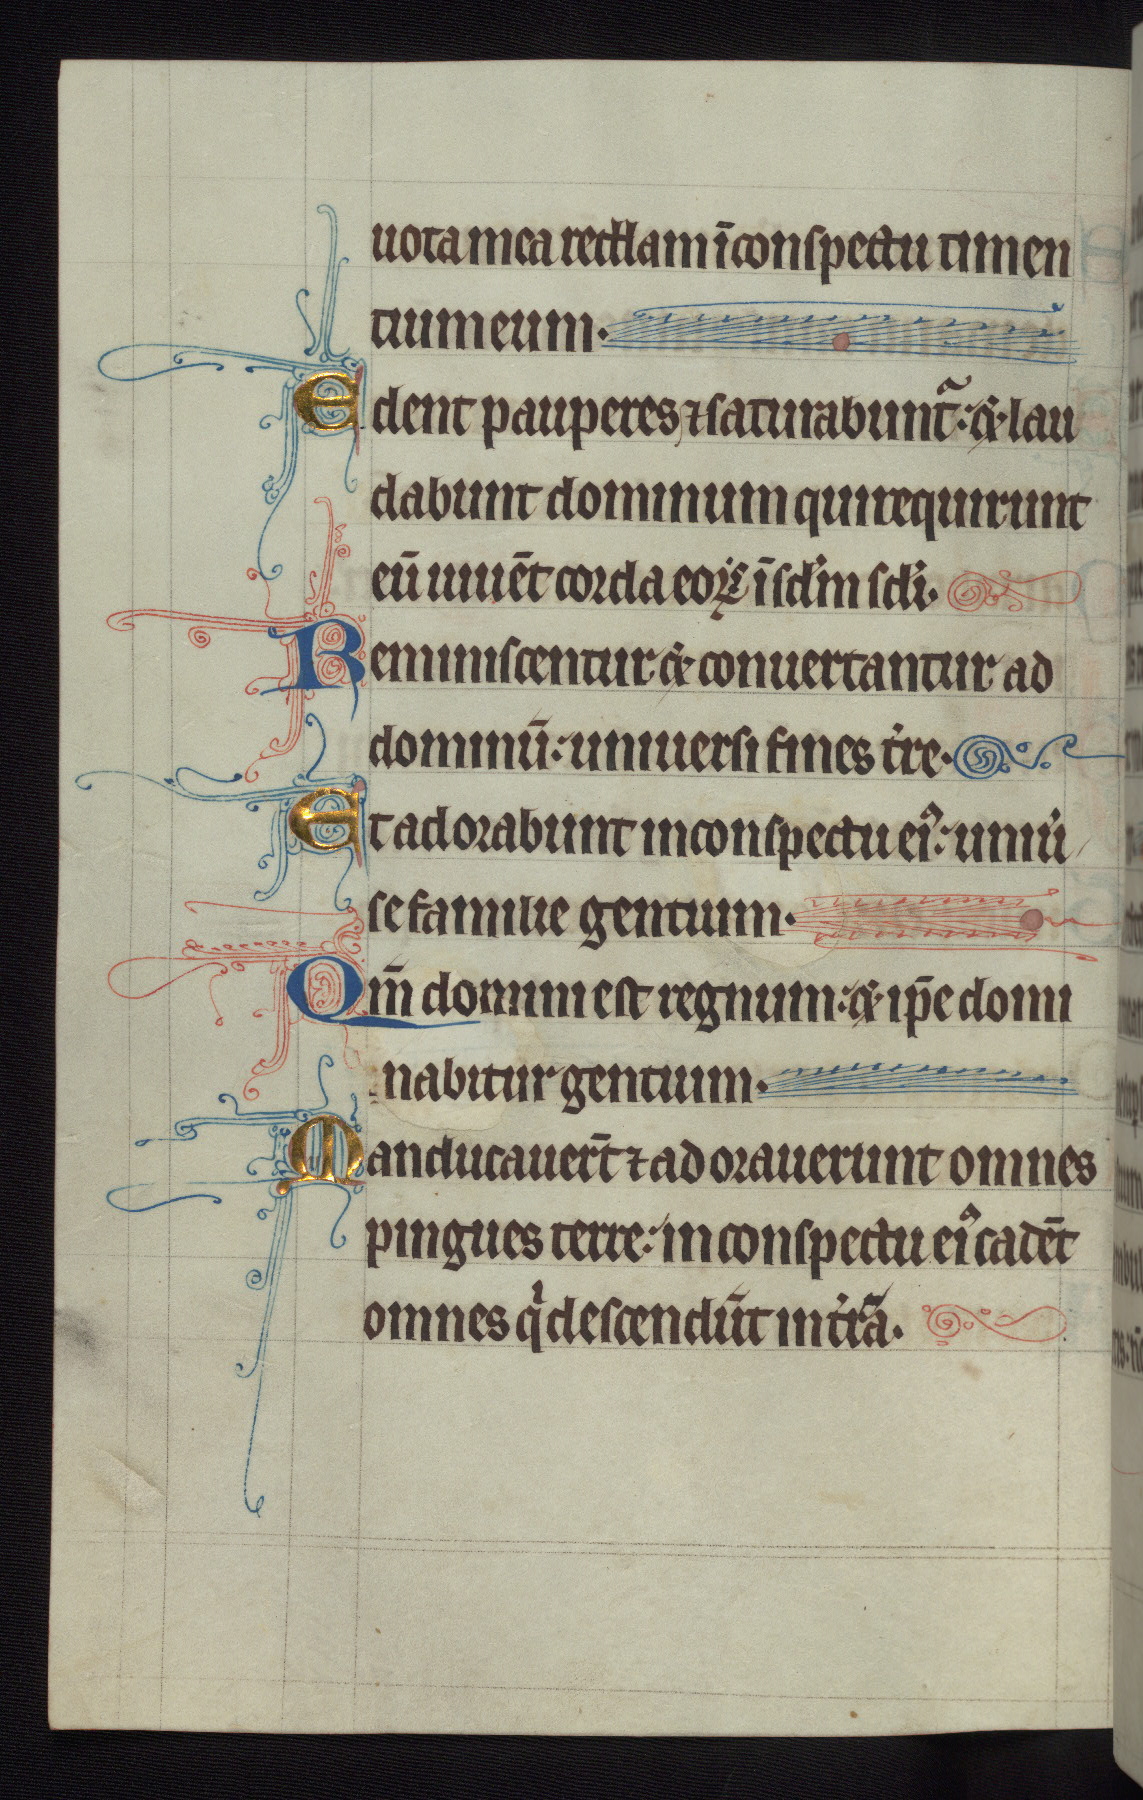 uota mea reddam ī conspectu timen
tium eum·
Edent pauperes ⁊ saturabuntᷓ: & lau
dabunt dominum qui requirunt
eū uiuēt corda eoꝝ ī sc̄lm sc̄li·
Reminiscentur & conuertantur ad
dominū: uniuersi fines tr̄re·
Et adorabunt in conspectu eiꝰ: uniu̾
se familie gentium·
Qm̄ domini est regnum: & ip̄e domi
nabitur gentium·
Manducauerūt ⁊ adorauerunt omnes
pingues terre: in conspectu eiꝰ cadēt
omnes qͥ descendūt in tr̄ra·